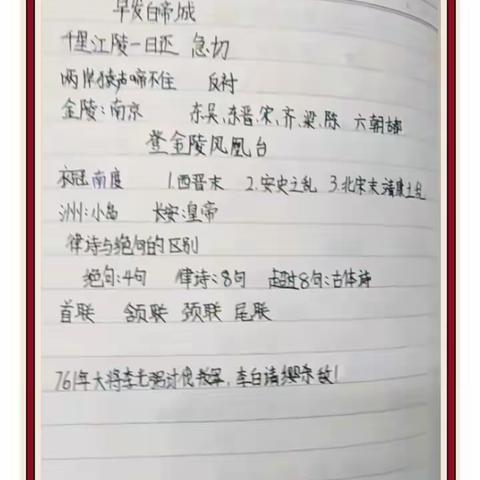 早发白帝城
千里江陵一日还 急切
两岸猿声啼不住 反衬
金陵:南京 东吴、东晋、宋、齐、梁、陈 六朝古都
登金陵凤凰台
衣冠南度 1.西晋末 2.安史之乱 3.北宋末靖康之乱
洲:小岛 长安:皇帝
律诗与绝句的区别
绝句:4句 律诗:8句 超过8句:古体诗
首联 颔联 颈联 尾联
761年大将李光弼讨伐叛军,李白请缨杀敌!